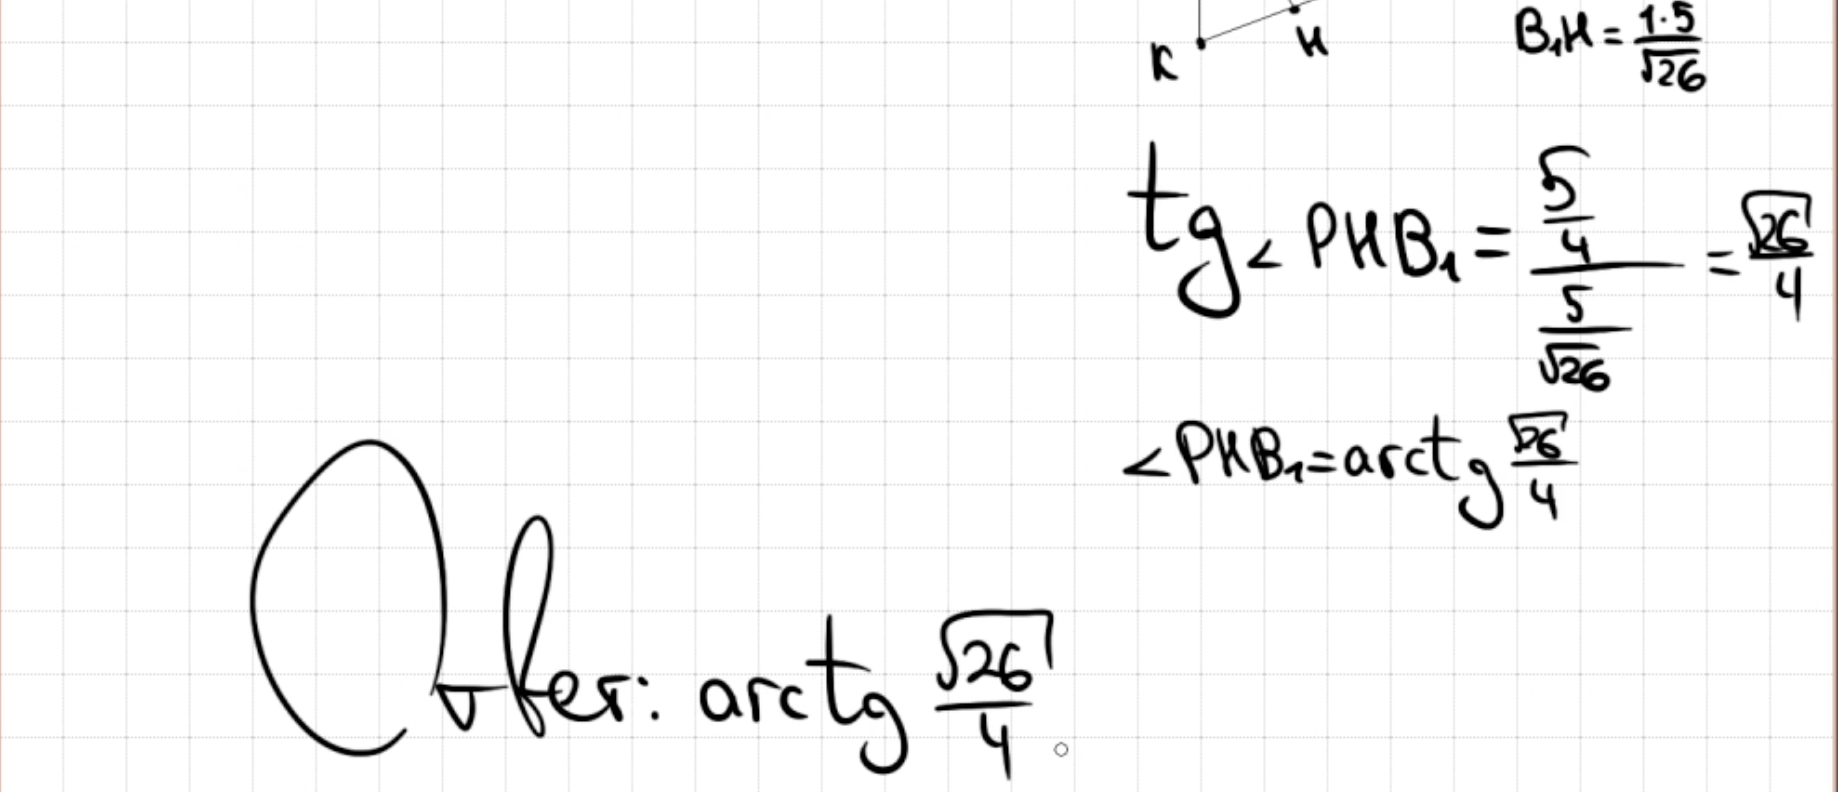 B₁H = 1·5/√26
K
H
tg∠PHB₁ = (5/4)/(5/√26) = √26/4
∠PHB₁ = arctg √26/4
Ответ: arctg √26/4.